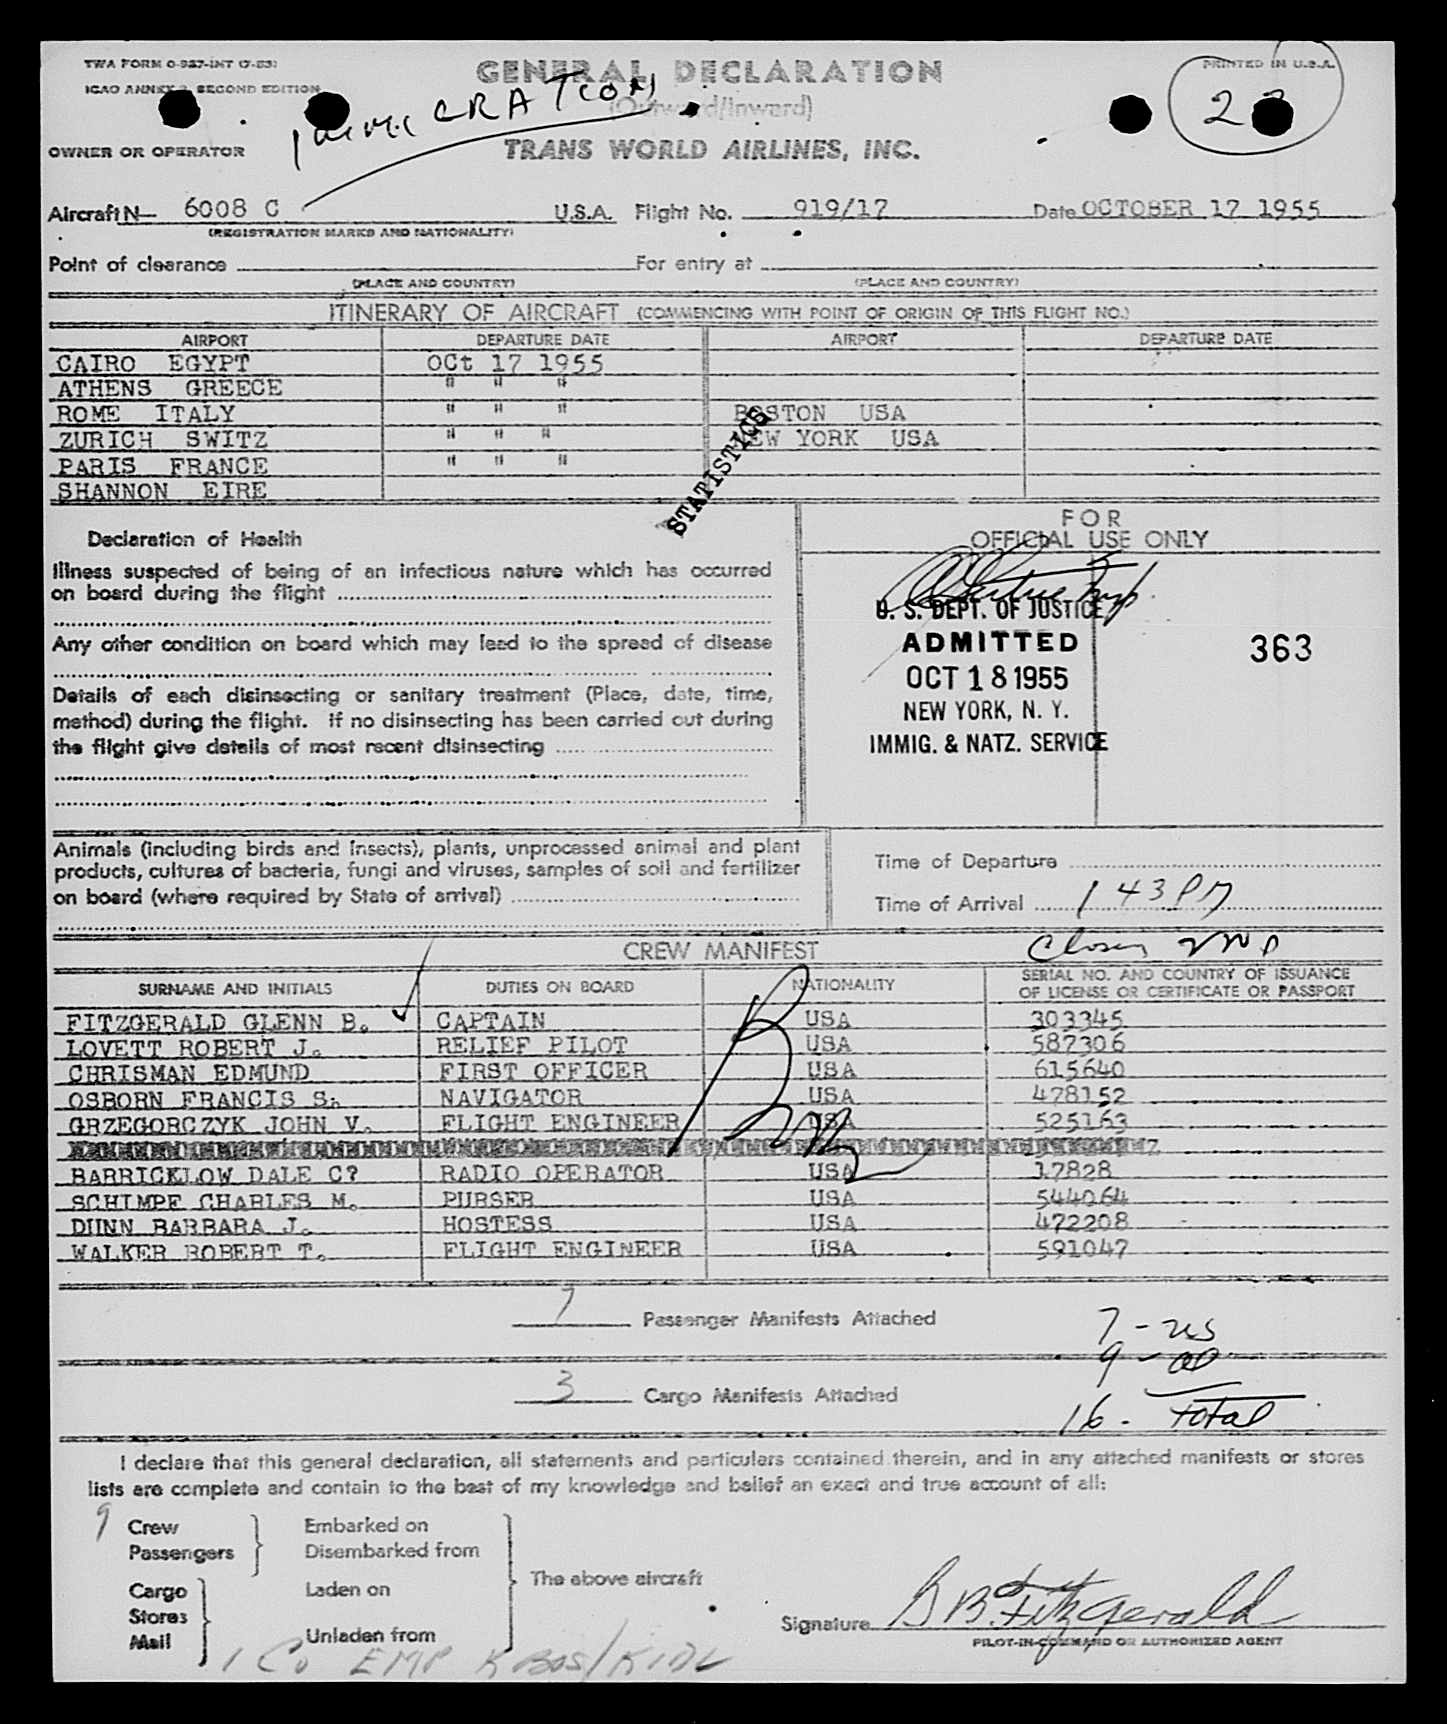 TWA FORM O-927-INT (7-53)
GENERAL DECLARATION
PRINTED IN U.S.A.
ICAO ANNEX 9, SECOND EDITION
(Outward/Inward)
OWNER OR OPERATOR
TRANS WORLD AIRLINES, INC.
Aircraft N— 6008 C U.S.A. Flight No. 919/17 Date OCTOBER 17 1955
(REGISTRATION MARKS AND NATIONALITY)
Point of clearance For entry at
(PLACE AND COUNTRY) (PLACE AND COUNTRY)
ITINERARY OF AIRCRAFT (COMMENCING WITH POINT OF ORIGIN OF THIS FLIGHT NO.)
AIRPORT DEPARTURE DATE AIRPORT DEPARTURE DATE
CAIRO EGYPT OCt 17 1955
ATHENS GREECE " " "
ROME ITALY " " " BOSTON USA
ZURICH SWITZ " " " NEW YORK USA
PARIS FRANCE " " "
SHANNON EIRE
STATISTICS
Declaration of Health
Illness suspected of being of an infectious nature which has occurred
on board during the flight
Any other condition on board which may lead to the spread of disease
Details of each disinsecting or sanitary treatment (Place, date, time,
method) during the flight. If no disinsecting has been carried out during
the flight give details of most recent disinsecting
FOR
OFFICIAL USE ONLY
U. S. DEPT. OF JUSTICE
ADMITTED
OCT 18 1955
NEW YORK, N. Y.
IMMIG. & NATZ. SERVICE
363
Animals (including birds and insects), plants, unprocessed animal and plant
products, cultures of bacteria, fungi and viruses, samples of soil and fertilizer
on board (where required by State of arrival)
Time of Departure
Time of Arrival 1 43 PM
CREW MANIFEST
SURNAME AND INITIALS DUTIES ON BOARD NATIONALITY SERIAL NO. AND COUNTRY OF ISSUANCE
OF LICENSE OR CERTIFICATE OR PASSPORT
FITZGERALD GLENN B. CAPTAIN USA 303345
LOVETT ROBERT J. RELIEF PILOT USA 587306
CHRISMAN EDMUND FIRST OFFICER USA 615640
OSBORN FRANCIS S. NAVIGATOR USA 478152
GRZEGORCZYK JOHN V. FLIGHT ENGINEER USA 525163
BARRICKLOW DALE C? RADIO OPERATOR USA 17828
SCHIMPF CHARLES M. PURSER USA 544064
DUNN BARBARA J. HOSTESS USA 472208
WALKER ROBERT T. FLIGHT ENGINEER USA 591047
7 Passenger Manifests Attached
7 - us
9 -
3 Cargo Manifests Attached
16 - Total
I declare that this general declaration, all statements and particulars contained therein, and in any attached manifests or stores
lists are complete and contain to the best of my knowledge and belief an exact and true account of all:
9 Crew Embarked on
Passengers Disembarked from
The above aircraft
Cargo Laden on
Stores
Mail Unladen from
Signature B B. Fitzgerald
PILOT-IN-COMMAND OR AUTHORIZED AGENT
1 Co EMP